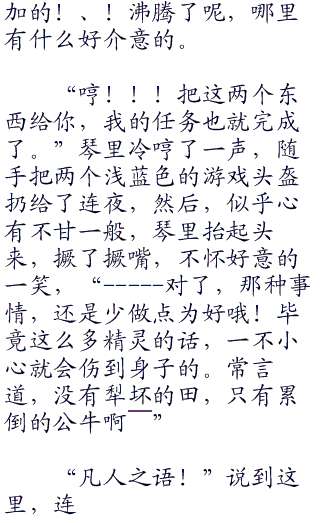 加的！、！沸腾了呢，哪里
有什么好介意的。
“哼！！！把这两个东
西给你，我的任务也就完成
了。”琴里冷哼了一声，随
手把两个浅蓝色的游戏头盔
扔给了连夜，然后，似乎心
有不甘一般，琴里抬起头
来，撅了撅嘴，不怀好意的
一笑，“-----对了，那种事
情，还是少做点为好哦！毕
竟这么多精灵的话，一不小
心就会伤到身子的。常言
道，没有犁坏的田，只有累
倒的公牛啊￣￣”
“凡人之语！”说到这
里，连